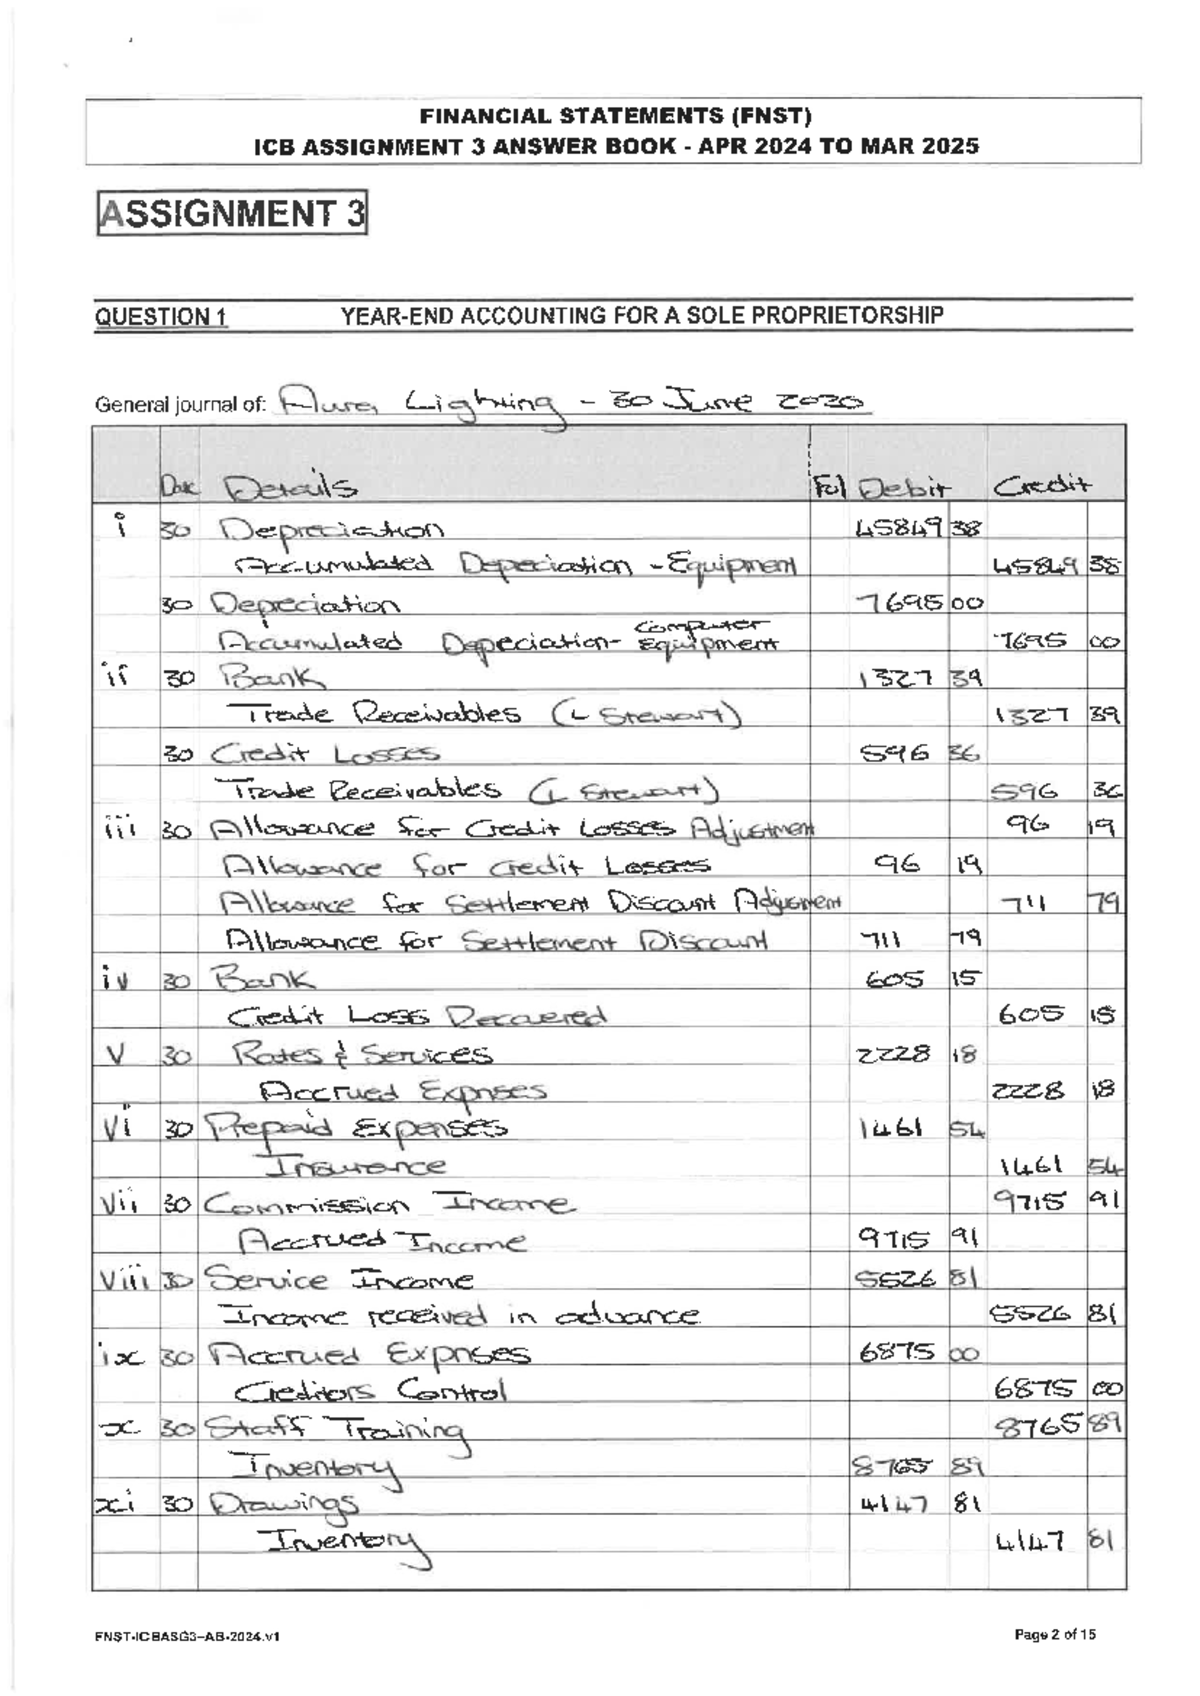 FINANCIAL STATEMENTS (FNST)
ICB ASSIGNMENT 3 ANSWER BOOK - APR 2024 TO MAR 2025
ASSIGNMENT 3
QUESTION 1 YEAR-END ACCOUNTING FOR A SOLE PROPRIETORSHIP
General journal of: Aura Lighting - 30 June 2020
Date Details Fol Debit Credit
i 30 Depreciation 45849 38
Accumulated Depeciation - Equipment 45849 38
30 Depreciation 7695 00
Accumulated Depeciation- Computer Equipment 7695 00
ii 30 Bank 1327 39
Trade Receivables (L Stewart) 1327 39
30 Credit Losses 596 36
Trade Receivables (L Stewart) 596 36
iii 30 Allowance for Credit Losses Adjustment 96 19
Allowance for Credit Losses 96 19
Allowance for Settlement Discount Adjusment 711 79
Allowance for Settlement Discount 711 79
iv 30 Bank 605 15
Credit Loss Recovered 605 15
v 30 Rates & Services 2228 18
Accrued Expnses 2228 18
vi 30 Prepaid Expenses 1461 54
Insurance 1461 54
vii 30 Commission Income 9715 91
Accrued Income 9715 91
viii 30 Service Income 5526 81
Income received in advance 5526 81
ix 30 Accrued Expnses 6875 00
Creditors Control 6875 00
x 30 Staff Training 8765 89
Inventory 8765 89
xi 30 Drawings 4147 81
Inventory 4147 81
FNST-ICBASG3-AB-2024.v1 Page 2 of 15